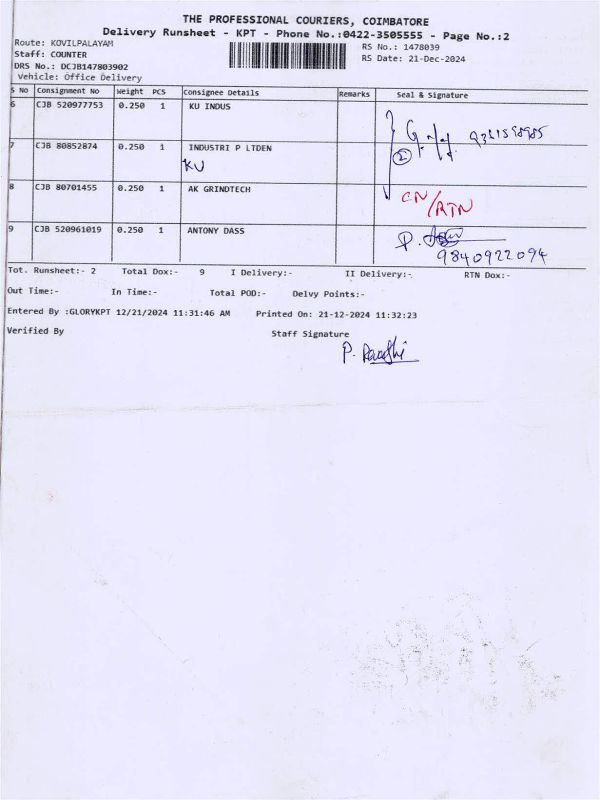 THE PROFESSIONAL COURIERS, COIMBATORE
Delivery Runsheet - KPT - Phone No.:0422-3505555 - Page No.:2
Route: KOVILPALAYAM
Staff: COUNTER
DRS No.: DCJB147803902
Vehicle: Office Delivery
RS No.: 1478039
RS Date: 21-Dec-2024
S No Consignment No Weight PCS Consignee Details Remarks Seal & Signature
6 CJB 520977753 0.250 1 KU INDUS
7 CJB 80852874 0.250 1 INDUSTRI P LTDEN
KU
2
8 CJB 80701455 0.250 1 AK GRINDTECH CN/RTN
9 CJB 520961019 0.250 1 ANTONY DASS
9840922094
Tot. Runsheet:- 2 Total Dox:- 9 I Delivery:- II Delivery:- RTN Dox:-
Out Time:- In Time:- Total POD:- Delvy Points:-
Entered By :GLORYKPT 12/21/2024 11:31:46 AM Printed On: 21-12-2024 11:32:23
Verified By Staff Signature